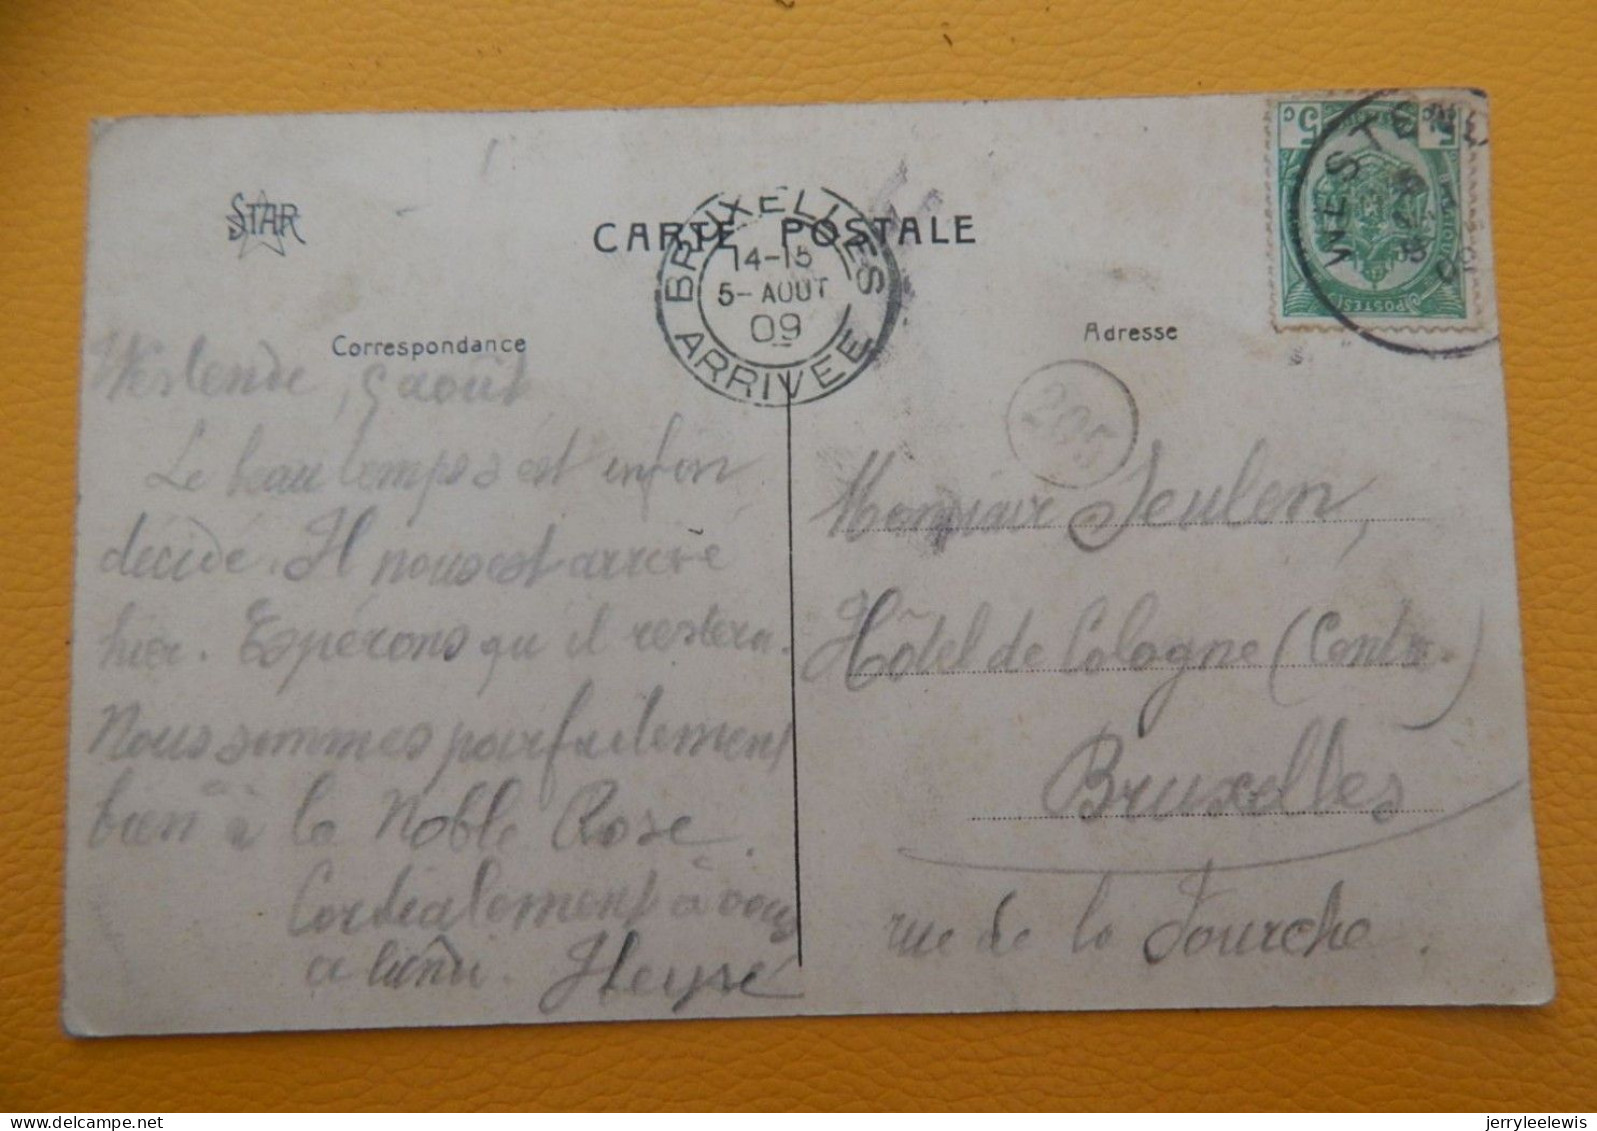 STAR
CARTE POSTALE
BRUXELLES
14-15
5-AOUT
09
ARRIVEE
WESTENDE
5c
5c
POSTES
Correspondance
Adresse
205
Westende, 5 août
Le beau temps s'est enfin
décidé. Il nous est arrivé
hier. Espérons qu'il restera.
Nous sommes parfaitement
bien à la Noble Rose.
Cordialement à vous
a lundi.
Monsieur Seulen,
Hôtel de Cologne (Centr.)
Bruxelles
rue de la Fourche.
jerryleelewis